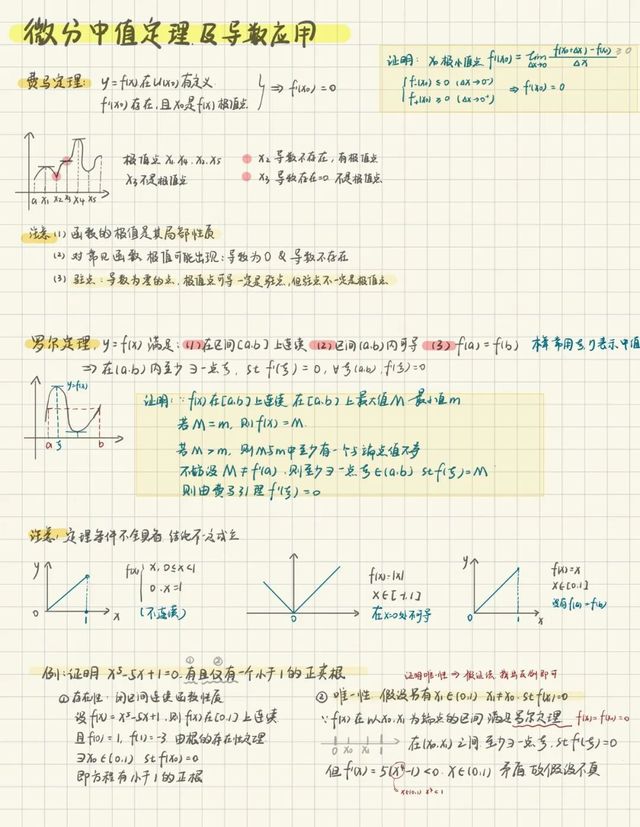 微分中值定理及导数应用
证明: x₀极小值点 f'(x₀)=lim Δx→0 f(x₀+Δx)-f(x₀) / Δx ≥0
{ f'₋(x₀)≤0 (Δx→0⁻)
f'₊(x₀)≥0 (Δx→0⁺) ⇒ f'(x₀)=0
费马定理: y=f(x)在U(x₀)有定义
f'(x₀)存在,且x₀是f(x)极值点 } ⇒ f'(x₀)=0
极值点 x₁.x₄.x₂.x₅
x₂导数不存在,有极值点
x₃不是极值点
x₃导数存在=0 不是极值点
a x₁ x₂ x₃ x₄ x₅
注意 (1) 函数的极值是其局部性质
(2) 对常见函数 极值可能出现:导数为0 & 导数不存在
(3) 驻点:导数为零的点,极值点可导一定是驻点,但驻点不一定是极值点
罗尔定理, y=f(x) 满足: (1)在区间[a.b]上连续 (2)区间(a.b)内可导 (3) f(a)=f(b)
⇒在(a.b)内至少∃一点ξ, st f'(ξ)=0,
y=f(x)
a ξ b
证明: ∵f(x)在[a.b]上连续 在[a.b]上最大值M 最小值m
若M=m, 则f(x)=M.
若M>m, 则M与m中至少有一个与端点值不等
不妨设M≠f(a).则至少∃一点ξ∈(a.b) st f(ξ)=M
则由费马引理f'(ξ)=0
注意: 定理条件不全具备,结论不一定成立
y
0 1 x
f(x) { x, 0≤x<1
0. x=1
(不连续)
0
f(x)=|x|
x∈[-1.1]
在x=0处不可导
y
0 1 x
f(x)=x
x∈[0.1]
没有f(a)=f(b)
① ②
例:证明 x⁵-5x+1=0.有且仅有一个小于1的正实根
证明唯一性 ⇒ 假设法,找出反例即可
①存在性: 闭区间连续函数性质
设f(x)=x⁵-5x+1.则f(x)在[0.1]上连续
且f(0)=1, f(1)=-3 由根的存在性定理
∃x₀∈(0.1) st f(x₀)=0
即方程有小于1的正根
② 唯一性 假设另有x₁∈(0.1) x₁≠x₀.st f(x₁)=0
∵f(x)在以x₀.x₁为端点的区间 满足罗尔定理 f(x₁)=f(x₀)=0
0 x₀ x₁ 1
在(x₀.x₁)之间至少∃一点ξ.st f'(ξ)=0
但f'(x)=5(x⁴-1)<0. x∈(0.1) 矛盾 故假设不真
x∈(0.1) x⁴<1